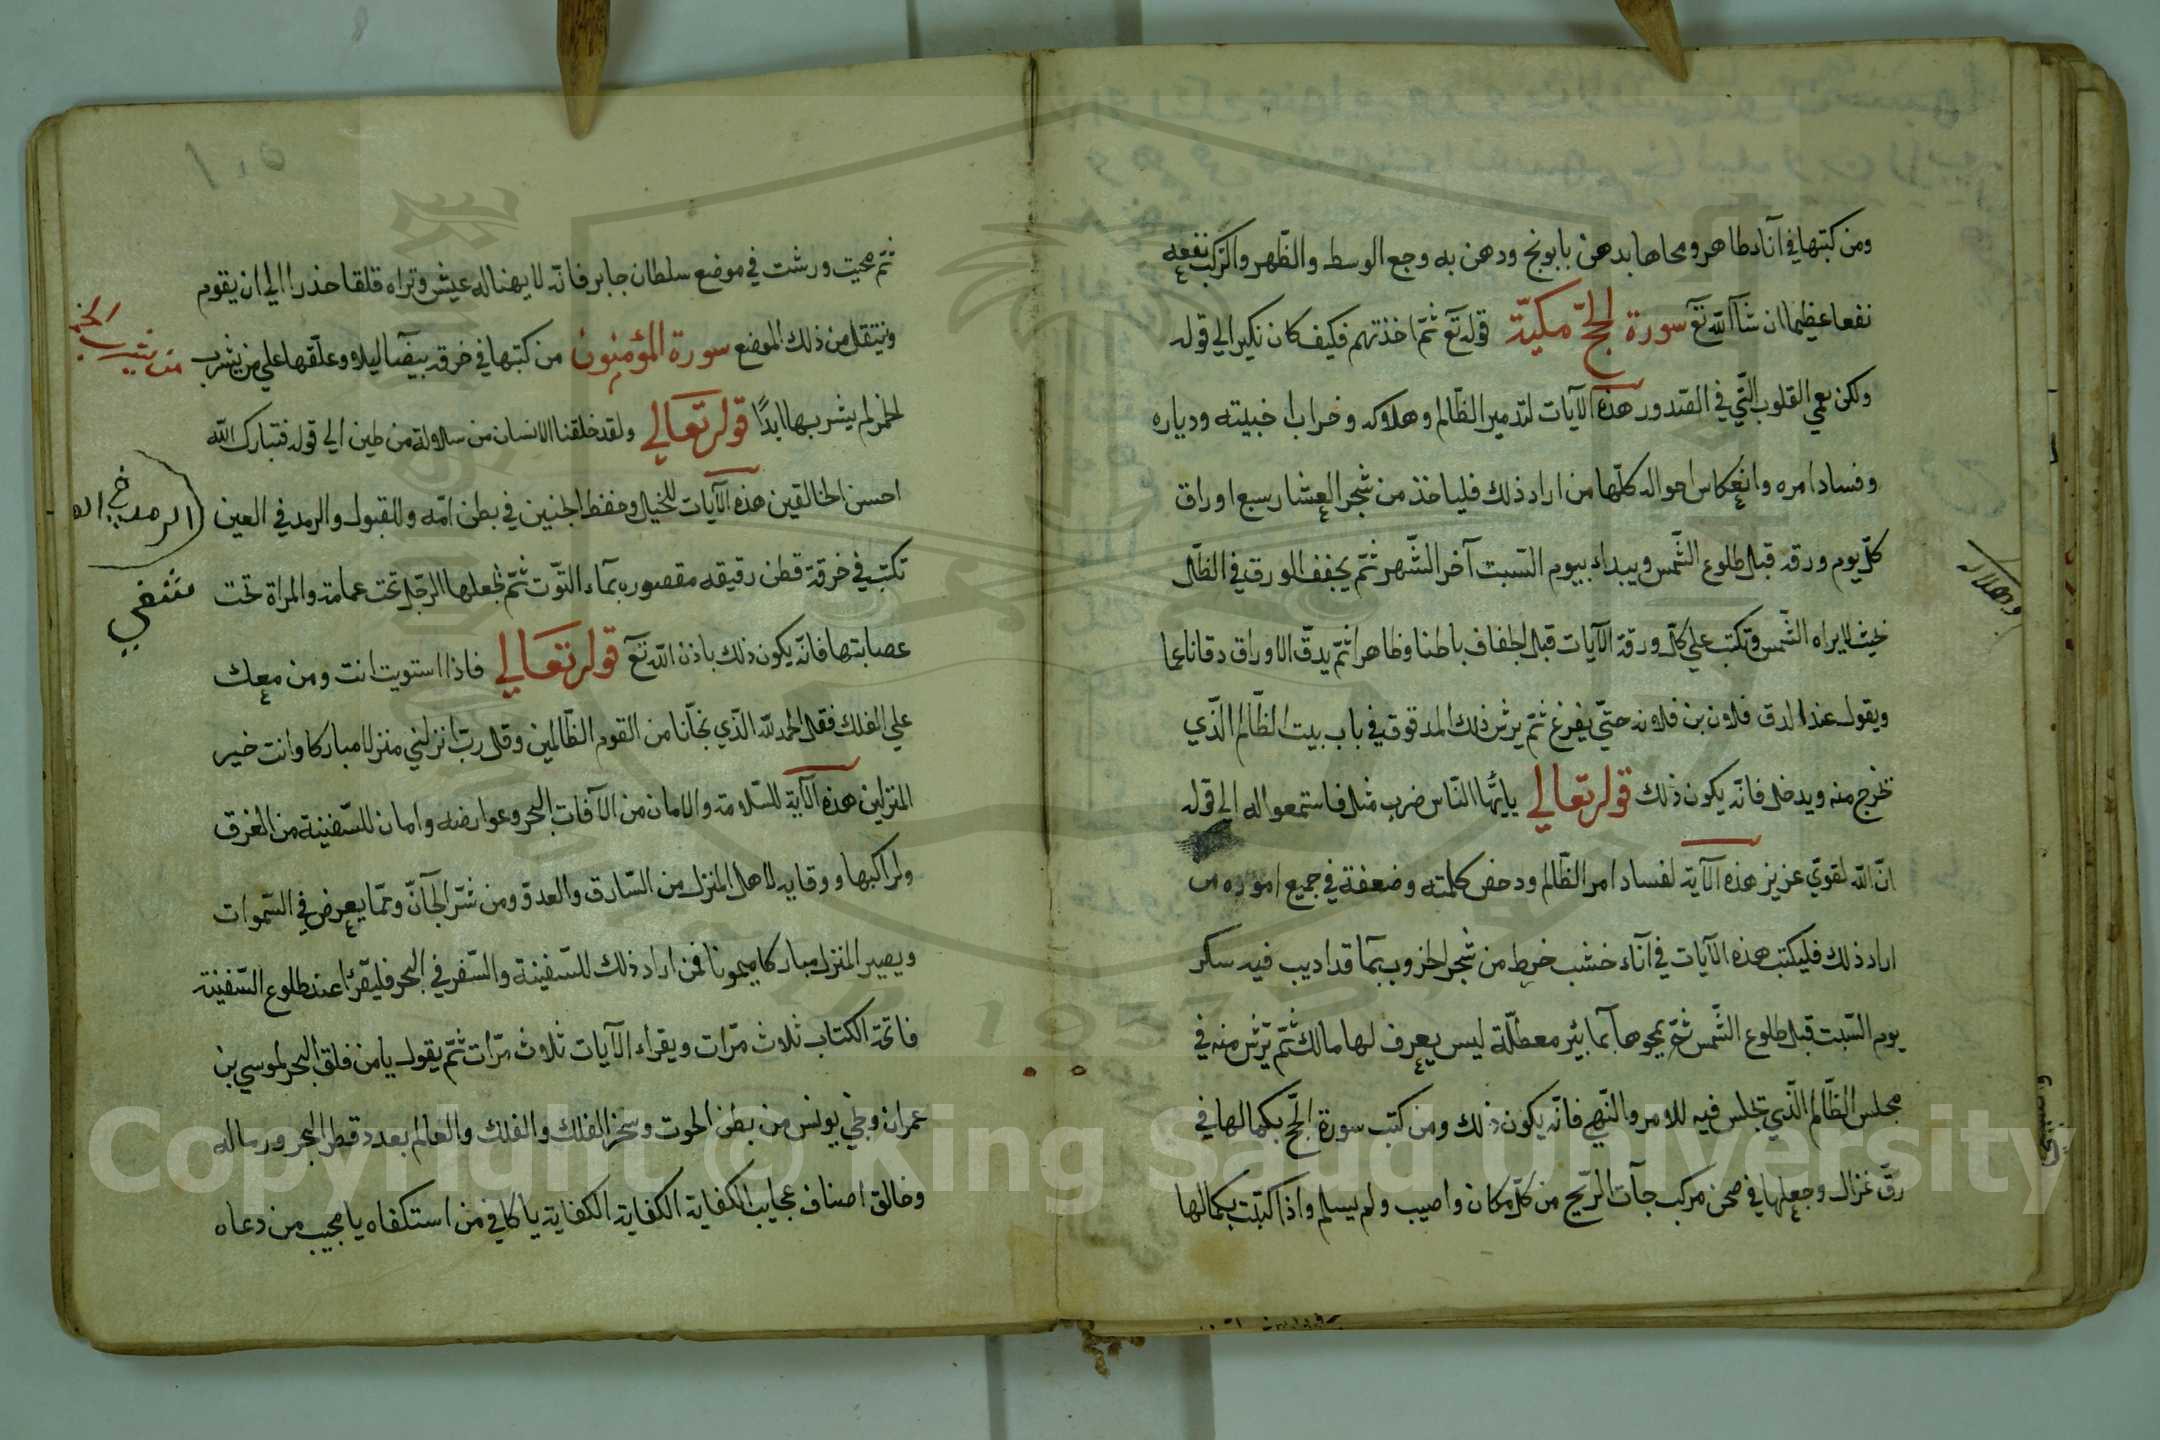 ومن كتبها في اناء طاهر ومحاها بدهن بابونج ودهن به وجع الوسط والظّهر والرّكب نفعه
نفعا عظيما ان شآ اللّه تعٓ سورة الحجّ مكيّة قوله تعٓ ثمّ اخذتهم فكيف كان نكير الي قوله
ولكن تعمي القلوب الّتي في الصّدور هذه الآيات لتدمير الظّالم وهلاكه وخراب اخبيته ودياره
وفساد امره وانعكاس احواله كلّها من اراد ذلك فلياخذ من شجر العشار سبع اوراق
كلّ يوم ورقه قبل طلوع الشّمس ويبداء بيوم السّبت آخر الشّهر ثمّ يجفف الورق في الظّل
بحيث لا يراه الشّمس وتكتب علي كلّ ورقة الآيات قبل الجفاف باطنا وظاهرا ثمّ يدقّ الاوراق دقا ناعما
ويقول عند الدق فلان بن فلانه حتّي يفرغ ثمّ يرش ذلك المدقوق في باب بيت الظّالم الّذي
تخرج منه ويدخل فانّه يكون ذلك قوله تعالي يايّها النّاس ضرب مثل فاستمعوا له الي قوله
انّ اللّه لقويّ عزيز هذه الآية لفساد امر الظّالم ودحض كلمته وضعفة في جميع اموره من
اراد ذلك فليكتب هذه الآيات في آناء خشب خرط من شجر الخزوب بمآ قد اديب فيه سكر
يوم السّبت قبل طلوع الشّمس ثمّ يمحوها بمآ بئير معطلّة ليس يعرف لها مالك ثمّ ترش منه في
مجلس الظّالم الّذي تجلس فيه للامر والنّهي فانّه يكون ذلك ومن كتب سورة الحجّ بكمالها في
رقّ غزال وجعلها في صحن مركب جآت الرّيح من كلّ مكان واصيب ولم يسلم واذا كتبت بكمالها
وهلاك
ثمّ محيت ورشت في موضع سلطان جابر فانّه لا يهنا له عيش وتراه قلقا حذرا الي ان يقوم
وينتقل من ذلك الموضع سورة المؤمنون من كتبها في خرقه بيضآ ليلا وعلّقها علي من يشرب
من يشرب الخمر
الخمر لم يشربها ابدًا قوله تعالي ولقد خلقنا الانسان من سلالة من طين الي قوله فتبارك اللّه
احسن الخالقين هذه الآيات للخيال وحفظ الجنين في بطن امّه وللقبول والرمد في العين
الرمد
تكتب في خرقة قطن رقيقه مقصوره بمآء التّوت ثمّ تجعلها الرّجل تحت عمامته والمراة تحت
عصابتها فانّه يكون ذلك باذن اللّه تعٓ قوله تعالي فاذا استويت انت ومن معك
علي الفلك فقل الحمد للّه الّذي نجّانا من القوم الظّالمين وقل ربّ انزلني منزلا مباركا وانت خير
المنزلين هذه الآية للسّلامة والامان من الآفات البحر وعوارضه وامان للسّفينة من الغرق
ولراكبها ووقايه لاهل المنزل من السّارق والعدوّ ومن شرّ الجآنّ وممّا يعرض في السّموات
ويصير المنزل مباركا ميمونا فمن اراد ذلك للسّفينة والسّفر في البحر فليقرئا عند طلوع السّفينة
فاتحة الكتاب ثلاث مرّات ويقراء الآيات ثلاث مرّات ثمّ يقول يا من فلق البحر لموسي بن
عمران ونجي يونس من بطن الحوت وسخر الفلك والفلك والعالم بعدد قطر البحر ورماله
وخالق اصناف عجايب الكفاية الكفاية الكفاية يا كافي من استكفاه يا مجيب من دعاه
Copyright © King Saud University
1957